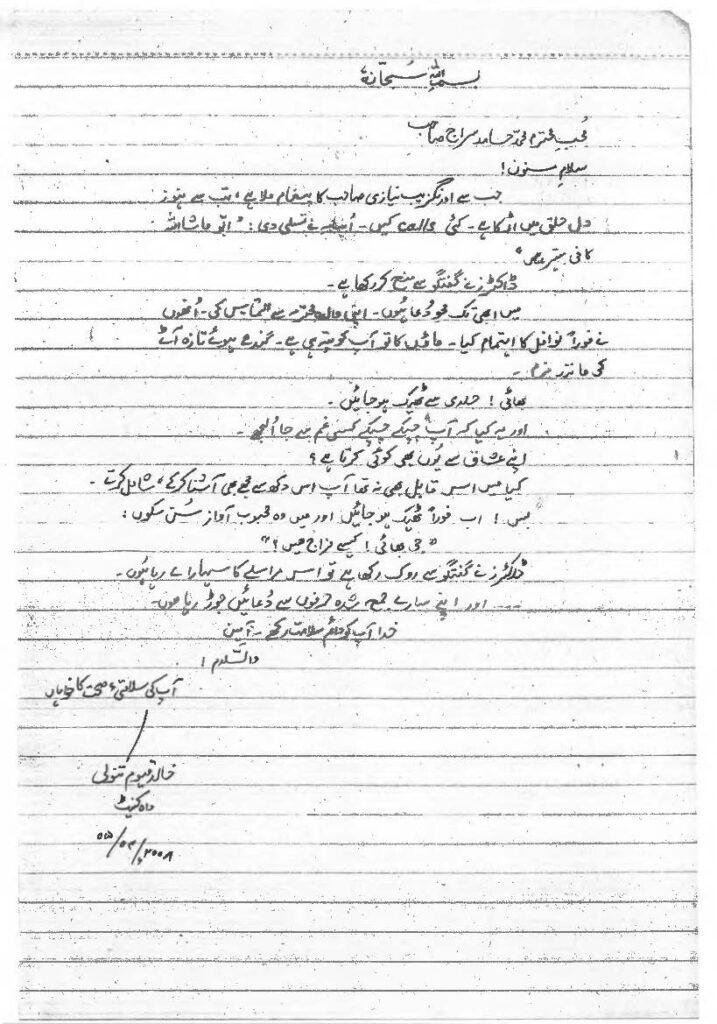 بسم اللہ سُبحانہٗ
مُحبِ محترم محمد حامد سراج صاحب
سلامِ مسنون!
جب سے اورنگزیب نیازی صاحب کا پیغام ملا ہے، تب سے ہنوز
دل حلق میں اٹکا ہے۔ کئی calls کیں۔ نے تسلی دی: "ابّو ماشااللہ
کافی بہتر ہیں"
ڈاکٹرز نے گفتگو سے منع کر رکھا ہے۔
میں ابھی تک محوِ دُعا ہُوں۔ اپنی والدہ محترمہ سے التماس کی۔ اُنھوں
نے فوراً نوافل کا اہتمام کیا۔ ماؤں کا تو آپ کو پتہ ہی ہے۔ گندھے ہوئے تازہ آٹے
کی مانند نرم۔
بھائی! جلدی سے ٹھیک ہو جائیں۔
اور یہ کیا کہ آپ چپکے چپکے کسی غم سے جا اُلجھے۔
اپنے عشاق سے یُوں بھی کوئی کرتا ہے؟
کیا میں اس قابل بھی نہ تھا آپ اس دکھ سے مجھے بھی آشنا کر کے، شامل کرتے۔
بس! اب فوراً ٹھیک ہو جائیں اور میں وہ محبوب آواز سُن سکوں:
"جی بھائی! کیسے مزاج ہیں؟"
ڈاکٹرز نے گفتگو سے روک رکھا ہے تو اس مراسلے کا سہارا لے رہا ہُوں۔
۔۔۔ اور اپنے سارے جمع شدہ حرفوں سے دُعائیں جوڑ رہا ہوں۔
خدا آپ کو دائم سلامت رکھے۔ آمین
والسّلام!
آپ کی سلامتی، صحت کا خواہاں
خالد قیوم تنولی
واہ کینٹ
۰۵/۰۳/۲۰۰۸ء